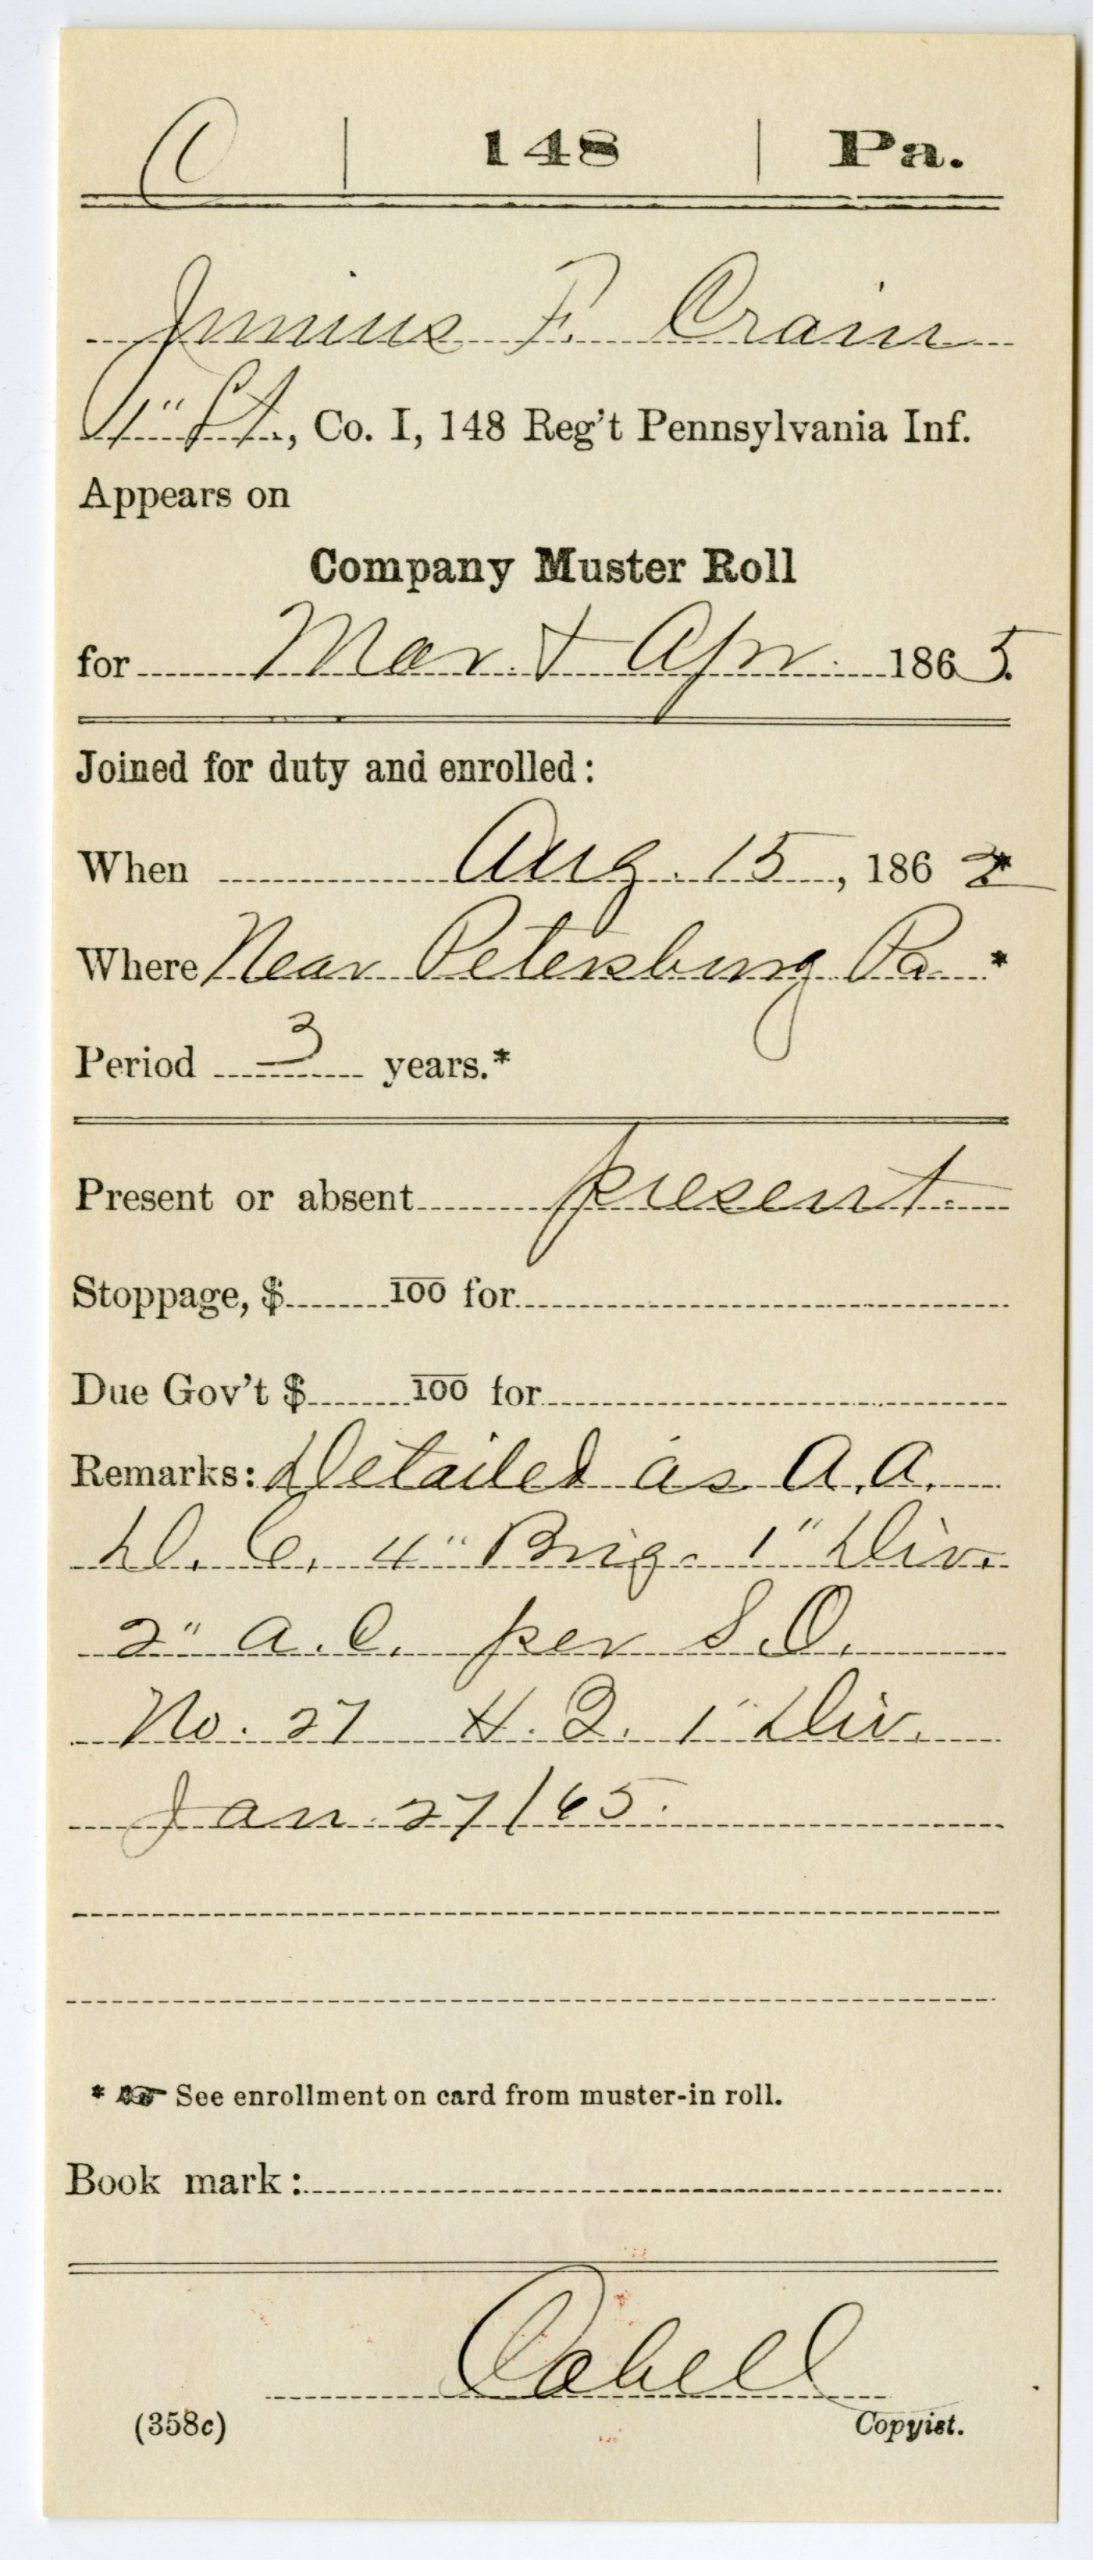 C | 148 | Pa.
Junius F. Crain
1" Lt., Co. I, 148 Reg't Pennsylvania Inf.
Appears on
Company Muster Roll
for Mar. & Apr. 1865.
Joined for duty and enrolled:
When Aug. 15, 1862*
Where Near Petersburg Pa *
Period 3 years.*
Present or absent present.
Stoppage, $ 100 for
Due Gov't $ 100 for
Remarks: Detailed as A.A.
D.C. 4" Brig. 1" Div.
2" A.C. per S.O.
No. 27 H.Q. 1" Div.
Jan. 27/65.
* ☞ See enrollment on card from muster-in roll.
Book mark:
Cabell
(358c) Copyist.